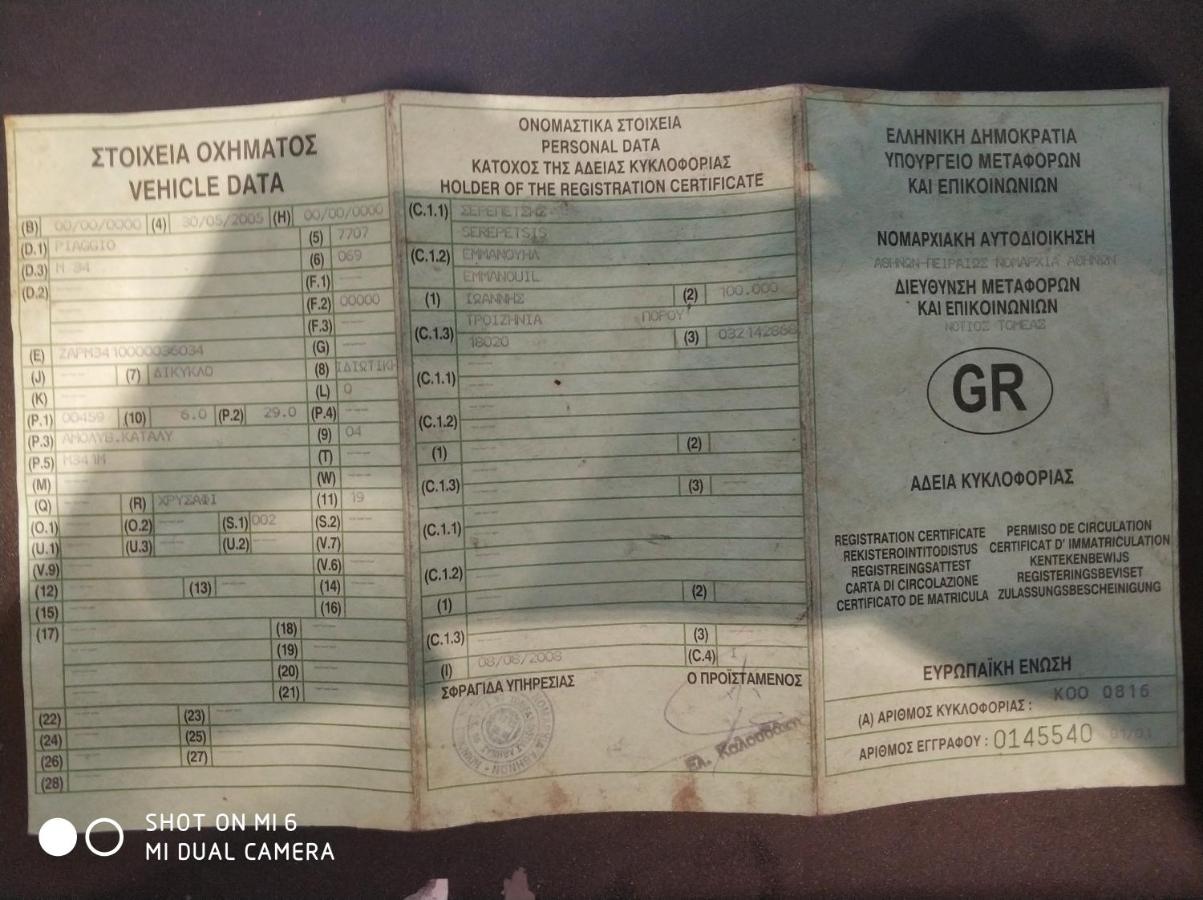 ΣΤΟΙΧΕΙΑ ΟΧΗΜΑΤΟΣ
VEHICLE DATA
(B) 00/00/0000 (4) 30/05/2005 (H) 00/00/0000
(D.1) PIAGGIO (5) 7707
(D.3) M 34 (6) 069
(D.2) (F.1) ---
--- (F.2) 00000
--- (F.3) ---
(E) ZAPM3410000036034 (G) ---
(J) --- (7) ΔΙΚΥΚΛΟ (8) ΙΔΙΩΤΙΚΗ
(K) --- (L) 0
(P.1) 00459 (10) 6.0 (P.2) 29.0 (P.4) ---
(P.3) ΑΜΟΛΥΒ.ΚΑΤΑΛΥ (9) 04
(P.5) M341M (T) ---
(M) --- (W) ---
(Q) --- (R) ΧΡΥΣΑΦΙ (11) 19
(O.1) --- (O.2) --- (S.1) 002 (S.2) ---
(U.1) --- (U.3) --- (U.2) --- (V.7) ---
(V.9) --- (V.6) ---
(12) --- (13) --- (14) ---
(15) --- (16) ---
(17) --- (18) ---
--- (19) ---
--- (20) ---
--- (21) ---
(22) --- (23) ---
(24) --- (25) ---
(26) --- (27) ---
(28) ---
ΟΝΟΜΑΣΤΙΚΑ ΣΤΟΙΧΕΙΑ
PERSONAL DATA
ΚΑΤΟΧΟΣ ΤΗΣ ΑΔΕΙΑΣ ΚΥΚΛΟΦΟΡΙΑΣ
HOLDER OF THE REGISTRATION CERTIFICATE
(C.1.1) ΣΕΡΕΠΕΤΣΗΣ
SEREPETSIS
(C.1.2) ΕΜΜΑΝΟΥΗΛ
EMMANOUIL
(1) ΙΩΑΝΝΗΣ (2) 100.000
(C.1.3) ΤΡΟΙΖΗΝΙΑ ΠΟΡΟΥ
18020 (3) 032142868
(C.1.1) ---
---
(C.1.2) ---
---
(1) --- (2) ---
(C.1.3) ---
--- (3) ---
(C.1.1) ---
---
(C.1.2) ---
---
(1) --- (2) ---
(C.1.3) ---
--- (3) ---
(I) 08/08/2008 (C.4) I
ΣΦΡΑΓΙΔΑ ΥΠΗΡΕΣΙΑΣ Ο ΠΡΟΪΣΤΑΜΕΝΟΣ
Ελ. Καλουδάκη
ΕΛΛΗΝΙΚΗ ΔΗΜΟΚΡΑΤΙΑ
ΥΠΟΥΡΓΕΙΟ ΜΕΤΑΦΟΡΩΝ
ΚΑΙ ΕΠΙΚΟΙΝΩΝΙΩΝ
ΝΟΜΑΡΧΙΑΚΗ ΑΥΤΟΔΙΟΙΚΗΣΗ
ΑΘΗΝΩΝ-ΠΕΙΡΑΙΩΣ ΝΟΜΑΡΧΙΑ ΑΘΗΝΩΝ
ΔΙΕΥΘΥΝΣΗ ΜΕΤΑΦΟΡΩΝ
ΚΑΙ ΕΠΙΚΟΙΝΩΝΙΩΝ
ΝΟΤΙΟΣ ΤΟΜΕΑΣ
GR
ΑΔΕΙΑ ΚΥΚΛΟΦΟΡΙΑΣ
REGISTRATION CERTIFICATE PERMISO DE CIRCULATION
REKISTEROINTITODISTUS CERTIFICAT D' IMMATRICULATION
REGISTREINGSATTEST KENTEKENBEWIJS
CARTA DI CIRCOLAZIONE REGISTERINGSBEVISET
CERTIFICATO DE MATRICULA ZULASSUNGSBESCHEINIGUNG
ΕΥΡΩΠΑΪΚΗ ΕΝΩΣΗ
(A) ΑΡΙΘΜΟΣ ΚΥΚΛΟΦΟΡΙΑΣ : ΚΟΟ 0816
ΑΡΙΘΜΟΣ ΕΓΓΡΑΦΟΥ : 0145540 01/01
SHOT ON MI 6
MI DUAL CAMERA